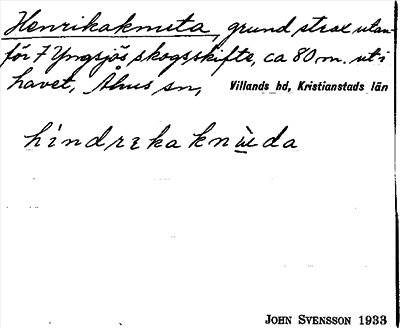 Henrikakmeta, grund strax utan-
för 7 Yngsjös skogsskifte, ca 80 m. ut i
havet, Åhus sn, Villands hd, Kristianstads län
híndrɛkaknùeda
JOHN SVENSSON 1933